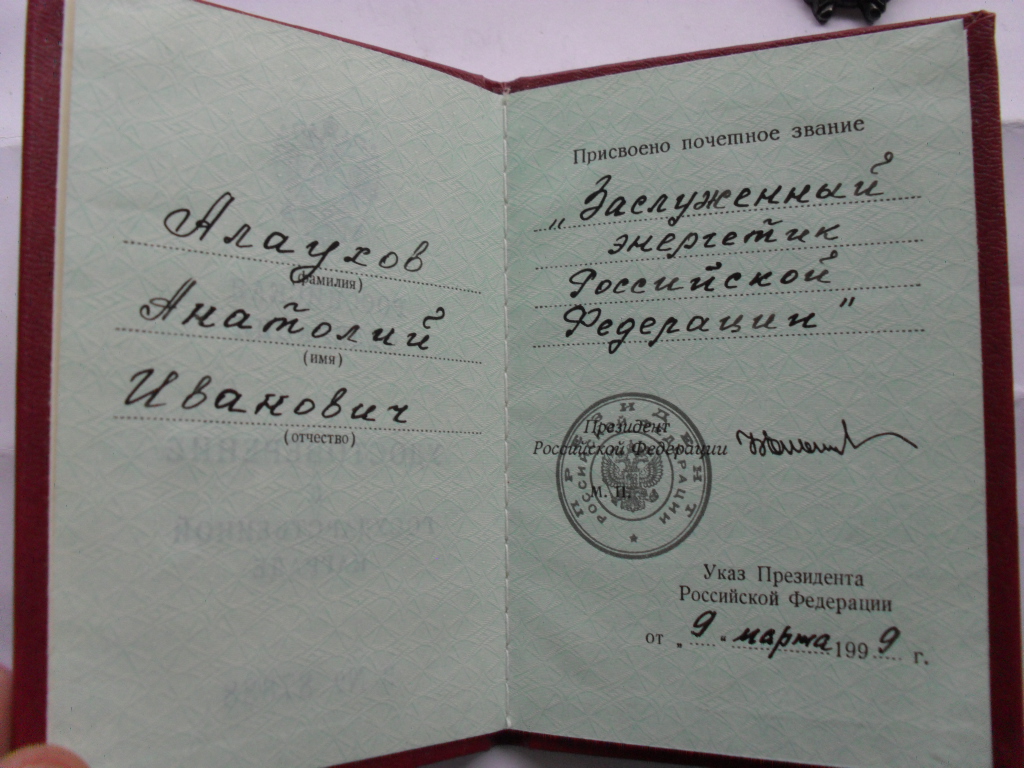 Алаухов
(фамилия)
Анатолий
(имя)
Иванович
(отчество)
Присвоено почетное звание
„Заслуженный
энергетик
Российской
Федерации"
ПРЕЗИДЕНТ
РОССИЙСКОЙ ФЕДЕРАЦИИ
Президент
Российской Федерации
М. П.
Указ Президента
Российской Федерации
от „9" марта 1999 г.